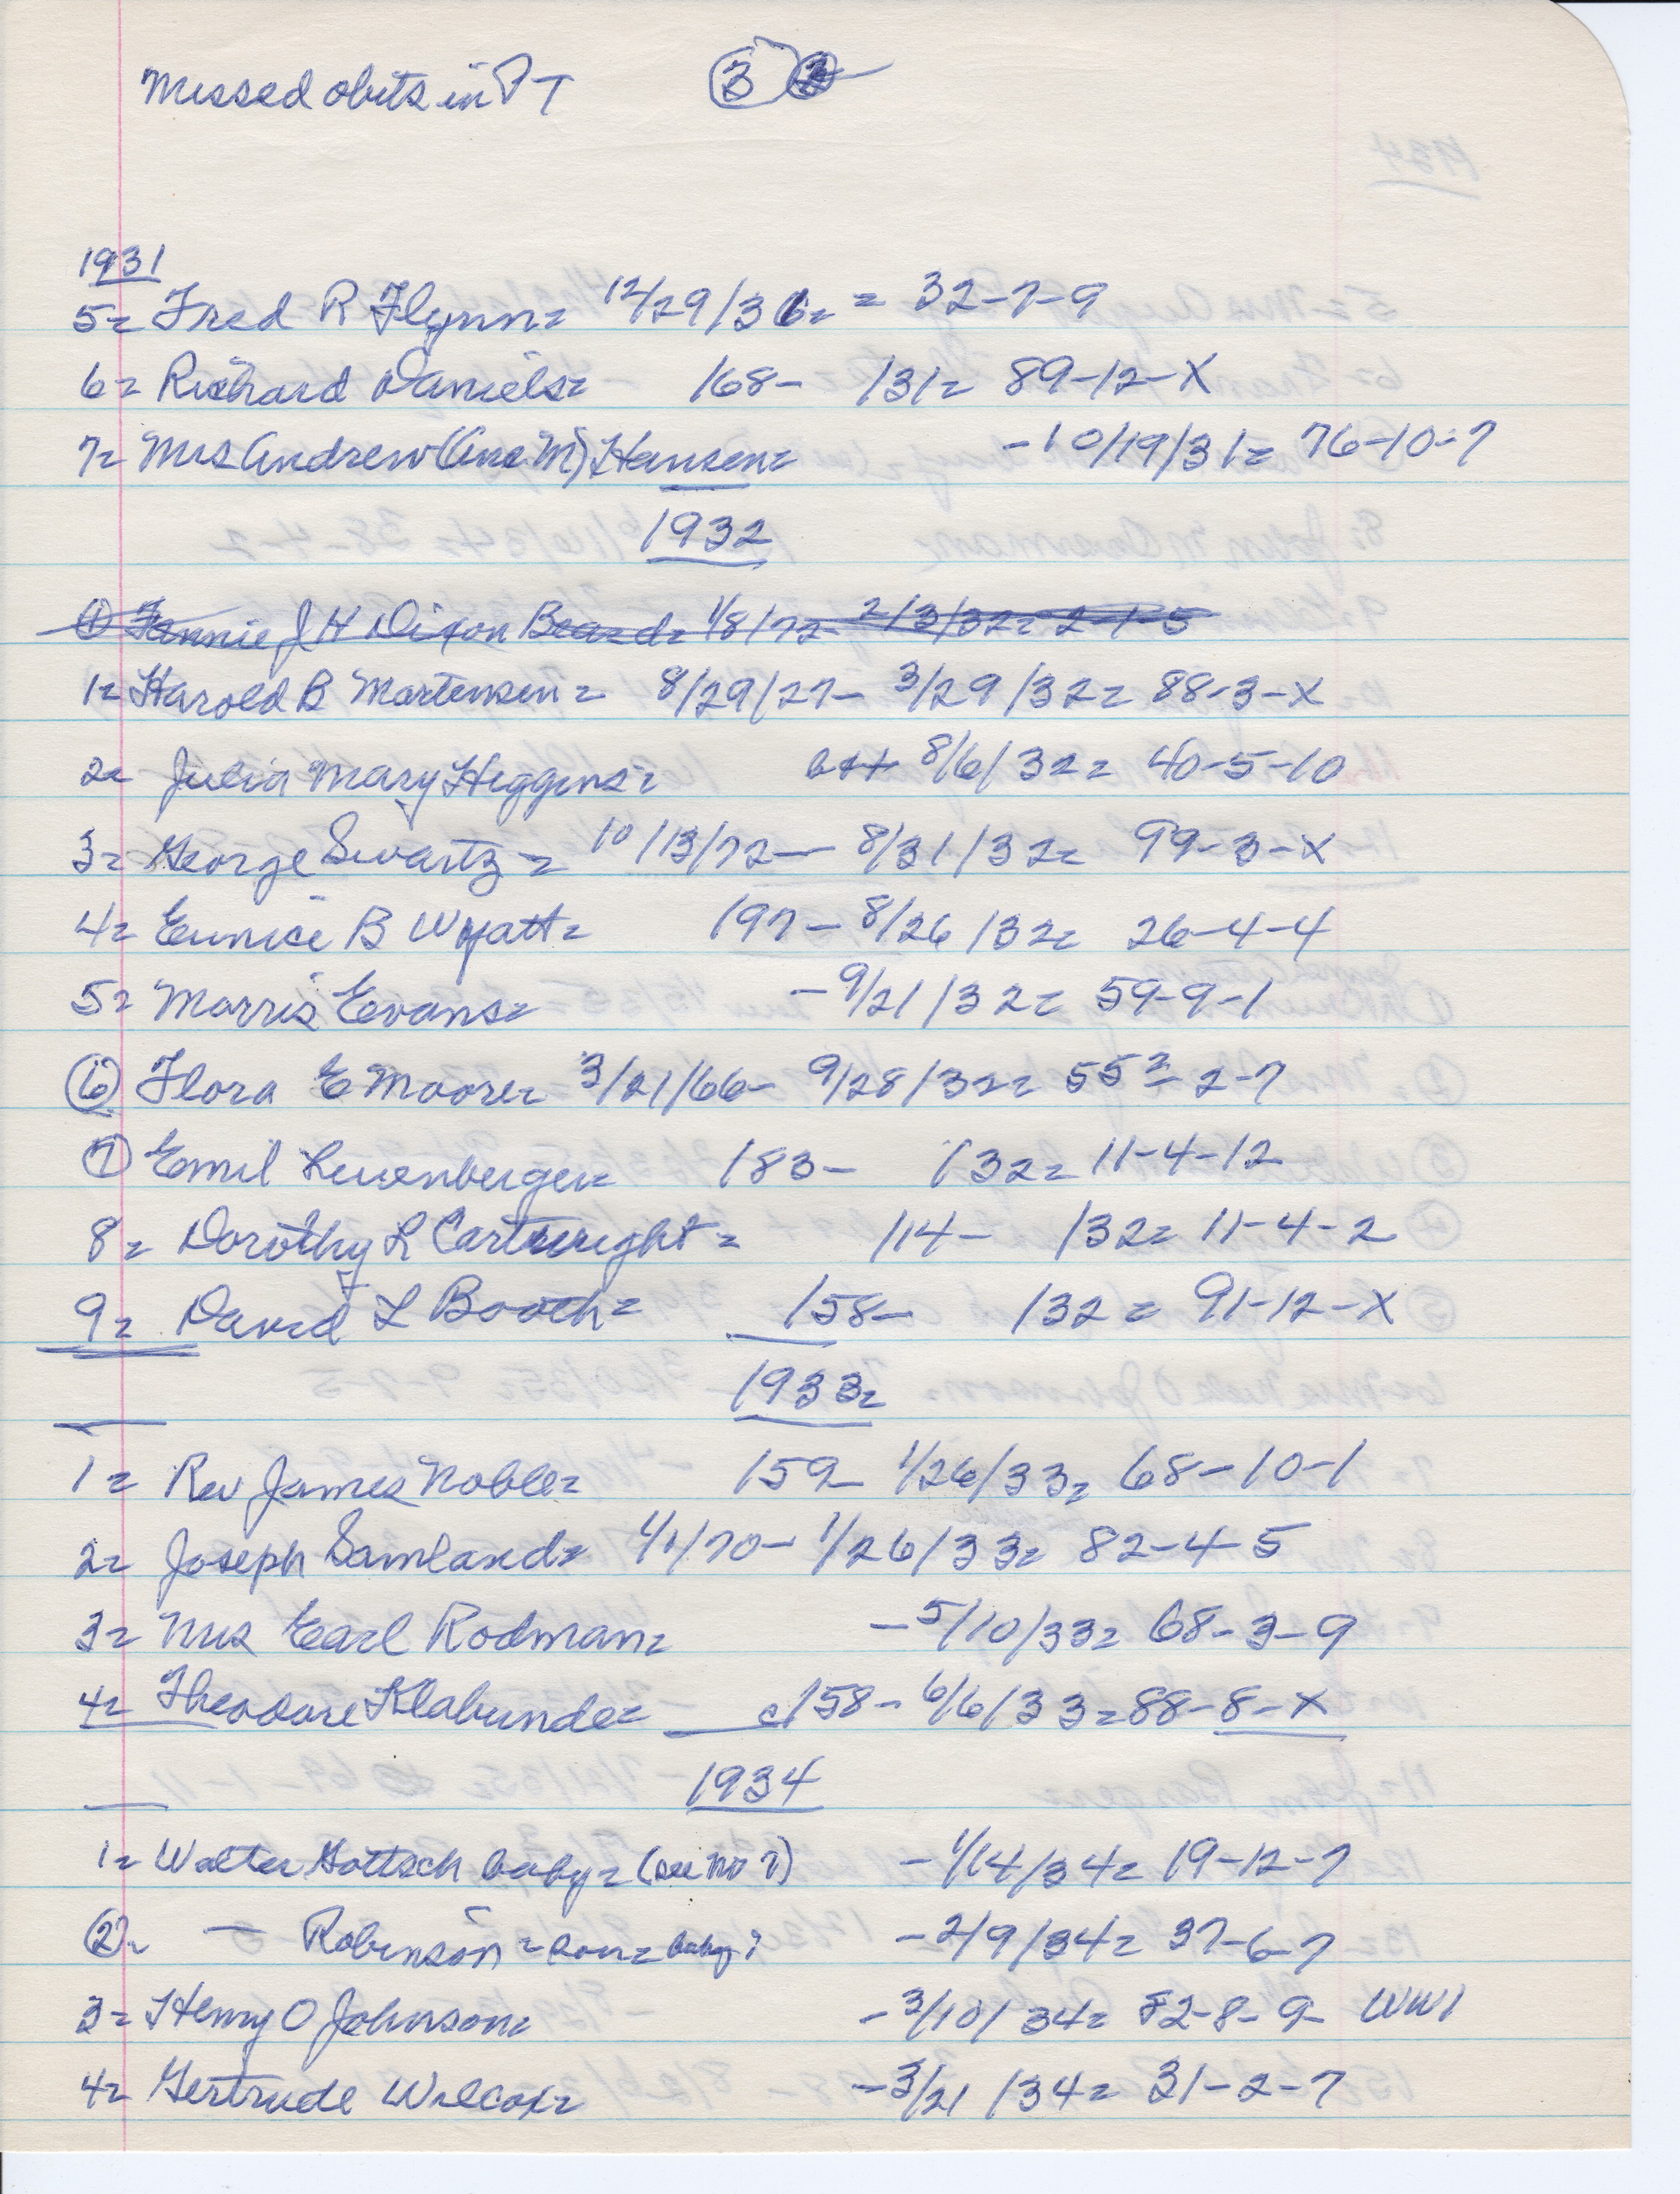 Missed obits in PT 3
1931
5= Fred R Flynn= 12/29/31= = 32-7-9
6= Richard Daniels= 168- 131= 89-12-X
7= Mrs Andrew (Ane M) Hansen= -10/19/31= 76-10-7
1932
① Fannie J H Dixon Beard= 1/8/72- 2/3/32= 2-1-5
1= Harold B Martensen= 8/29/27- 3/29/32= 88-3-X
2= Julia Mary Higgins= 8/6/32= 40-5-10
3= George Swartz= 10/13/72- 8/31/32= 99-3-X
4= Eunice B Wyatt= 197- 8/26/32= 26-4-4
5= Morris Evans= -9/21/32= 59-9-1
⑥ Flora E Moore= 3/21/66- 9/28/32= 55?-2-7
⑦ Emil Leuenberger= 183- 132= 11-4-12
8= Dorothy L Cartwright= 114- 132= 11-4-2
9= David L Booth= 158- 132= 91-12-X
1933=
1= Rev James Noble= 159- 1/26/33= 68-10-1
2= Joseph Samland= 4/1/70- 1/26/33= 82-4-5
3= Mrs Earl Rodman= -5/10/33= 68-3-9
4= Theodore Klabunde= c158- 6/6/33=88-8-X
1934
1= Walter Gottsch baby= (see no 7) -1/14/34= 19-12-7
②= — Robinson= son= baby? -2/9/34= 37-6-7
3= Henry O Johnson= -3/10/34= 82-8-9- WW1
4= Gertrude Wilcox= -3/21/34= 31-2-7